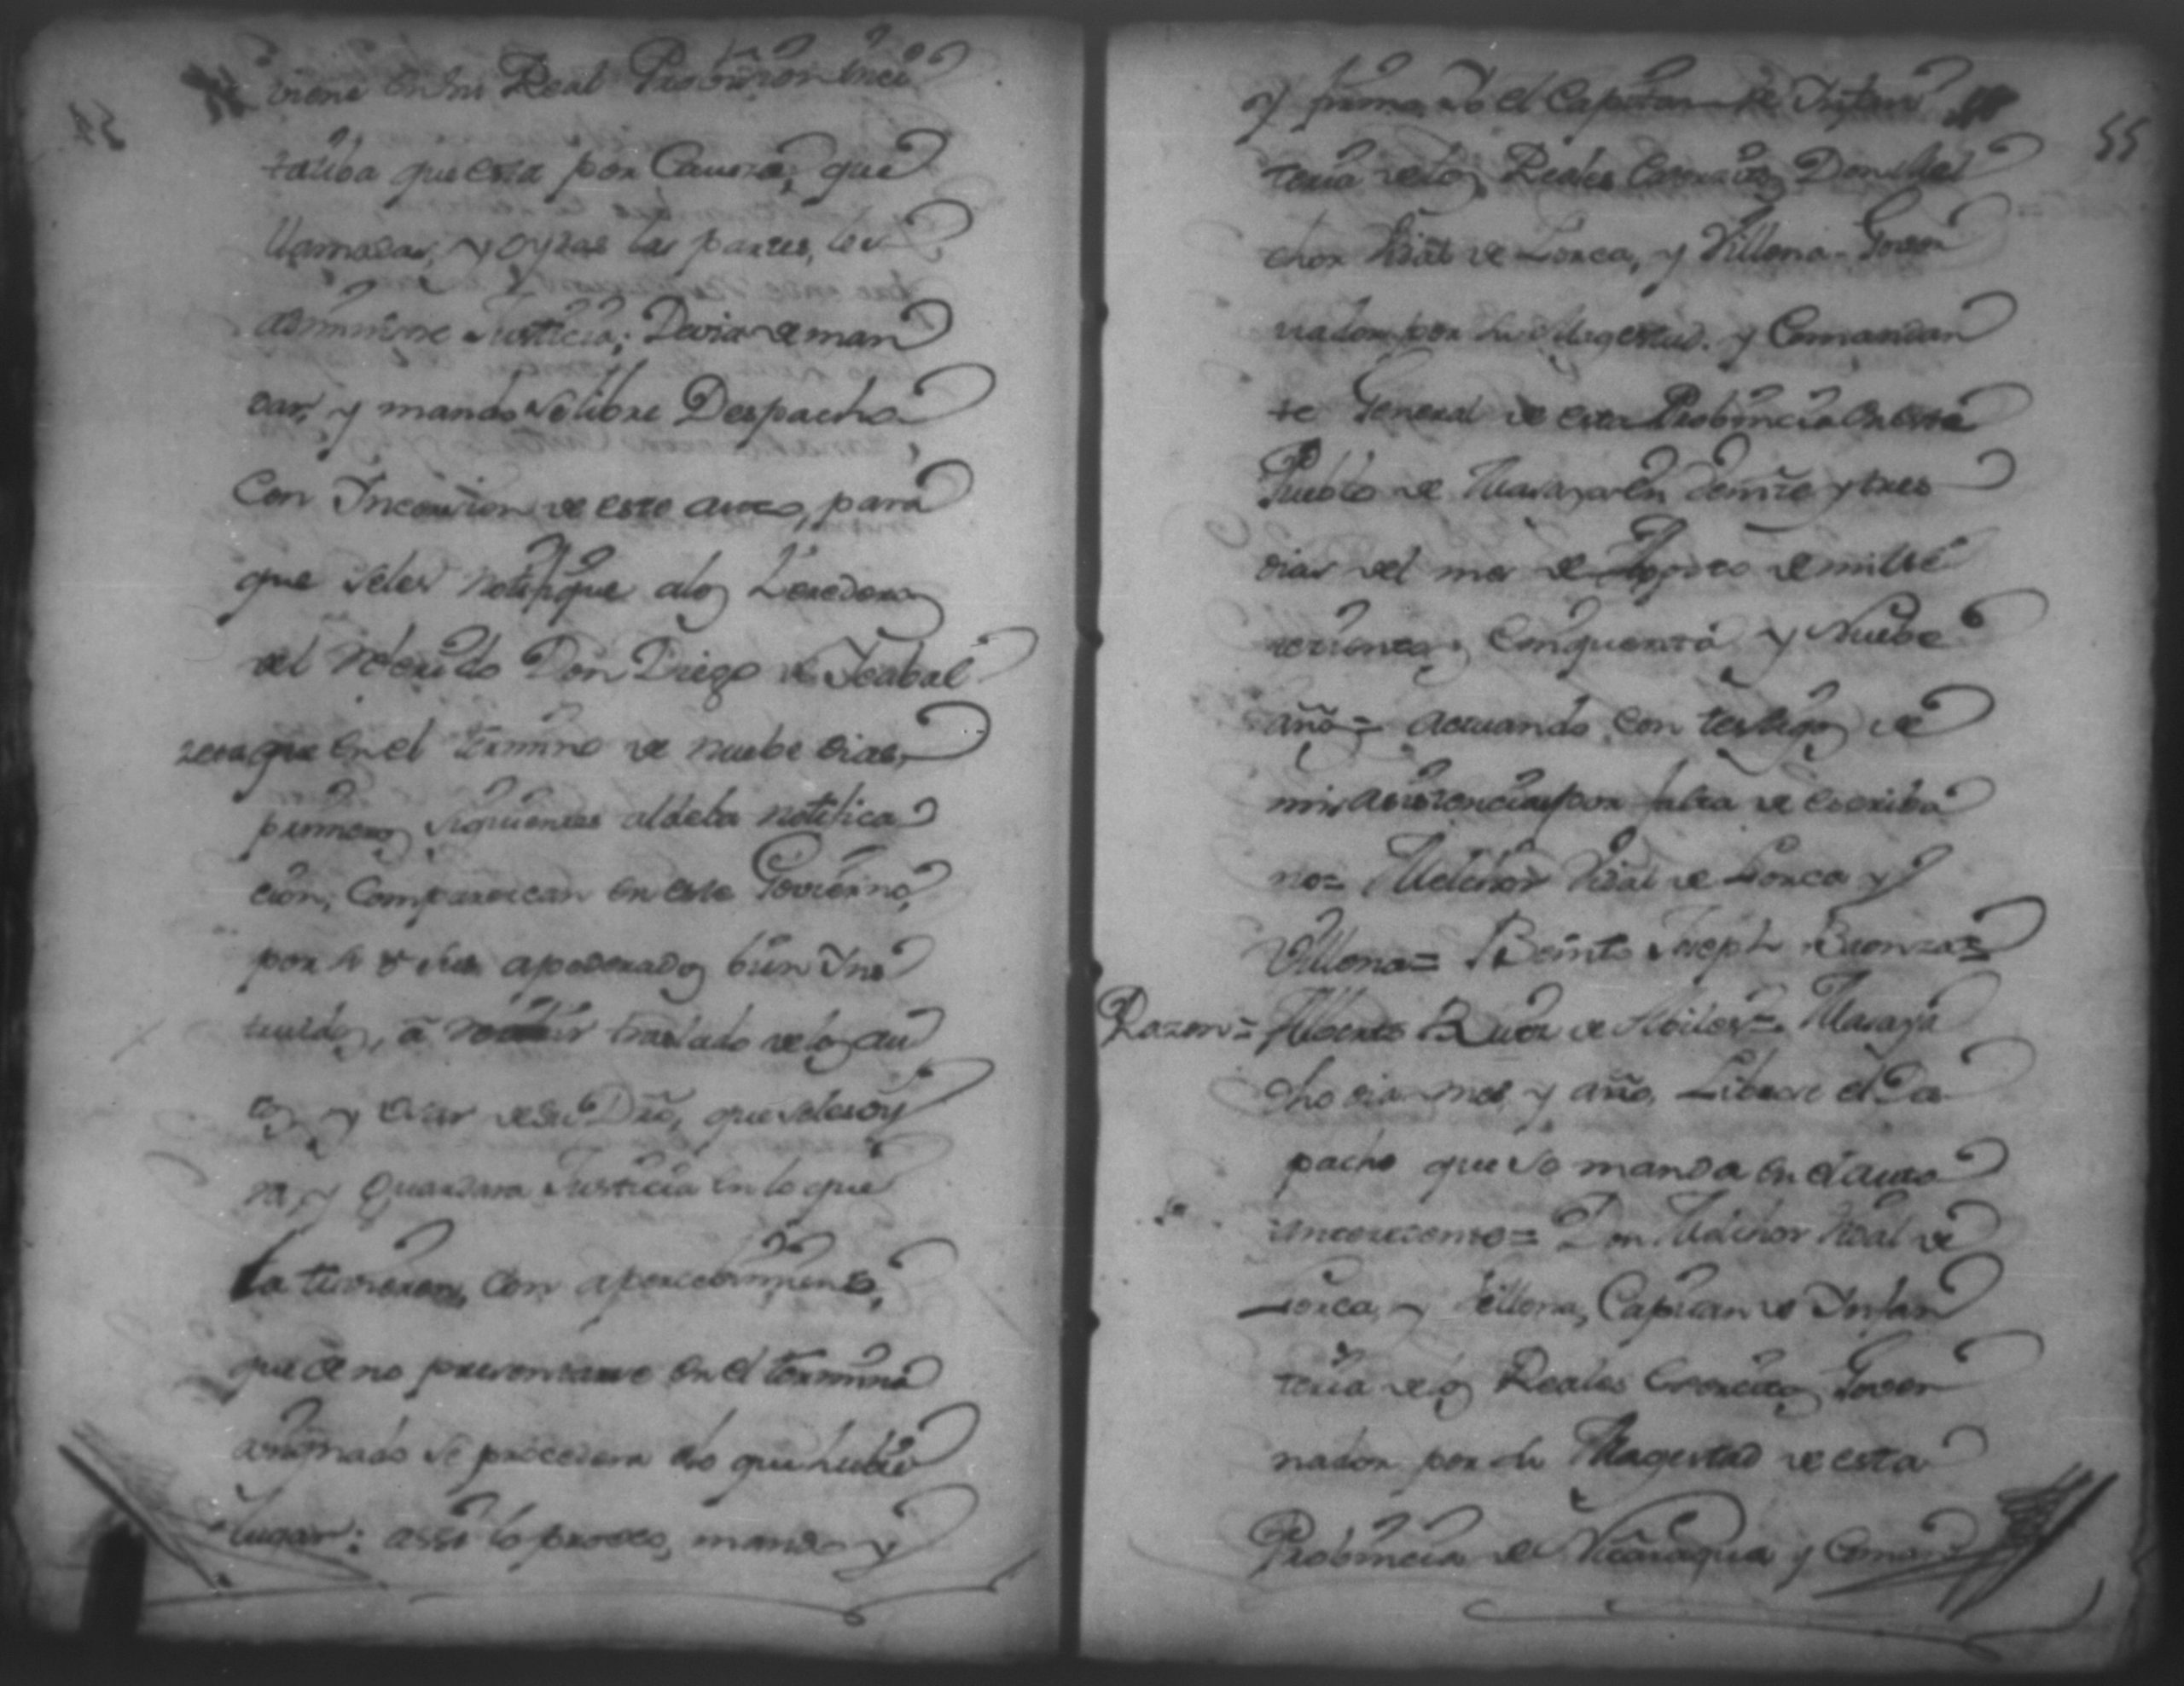 viene en su Real Provision inci
tatiba que esta por Cavesa, que
llamadas, y oydas las partes, les
administre Justicia; Devia de man
dar, y mando se libre Despacho
Con Incersion de este auto, para
que seles notifique alos Eredero
del referido Don Diego de
que en el termino de nuebe dias
primeros siguientes al dela notifica
cion, Comparescan en este Govierno,
por si o sus apoderados bien Ins
truidos, á traslado de los au
tos y Usar de su Dño, que seles oy
ra, y Guardara Justicia en lo que
la tuvieren, Con apercevimiento,
que de no presentarse en el termino
asignado se procedera alo que hubie
lugar: assi lo proveo, mando y
55
y firmo, Yo el Capitan de Infan
teria de los Reales Don Mel
chor Vidal de Lorca, y Villena Gover
nador por su Magestad. y Comandan
te General de esta Probincia En este
Pueblo de Masaya en veinte y tres
dias del mes de Agosto de mill se
tecientos, Cinquenta y Nuebe
años = actuando con testigos de
mi asistencia por falta de escriba
no = Melchor Vidal de Lorca y
Villena = Benito Joseph
Razon = Alberto de = Masaya
dho dia mes y año, Librose el Des
pacho que se manda en el auto
antecedente = Don Melchor Vidal de
Lorca, y Villena, Capitan de Infan
teria de los Reales Exercitos Gover
nador por su Magestad de esta
Probincia de Nicaragua y Coman